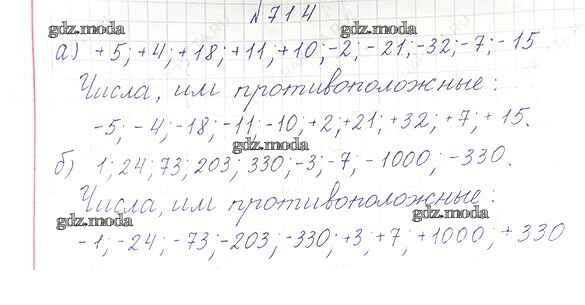 №714
а) +5; +4; +18; +11; +10; -2; -21; -32; -7; -15
Числа, им противоположные:
-5; -4; -18; -11; -10; +2; +21; +32; +7; +15.
б) 1; 24; 73; 203; 330; -3; -7; -1000; -330.
Числа, им противоположные:
-1; -24; -73; -203; -330; +3; +7; +1000; +330
gdz.moda
gdz.moda
gdz.moda
gdz.moda
gdz.moda